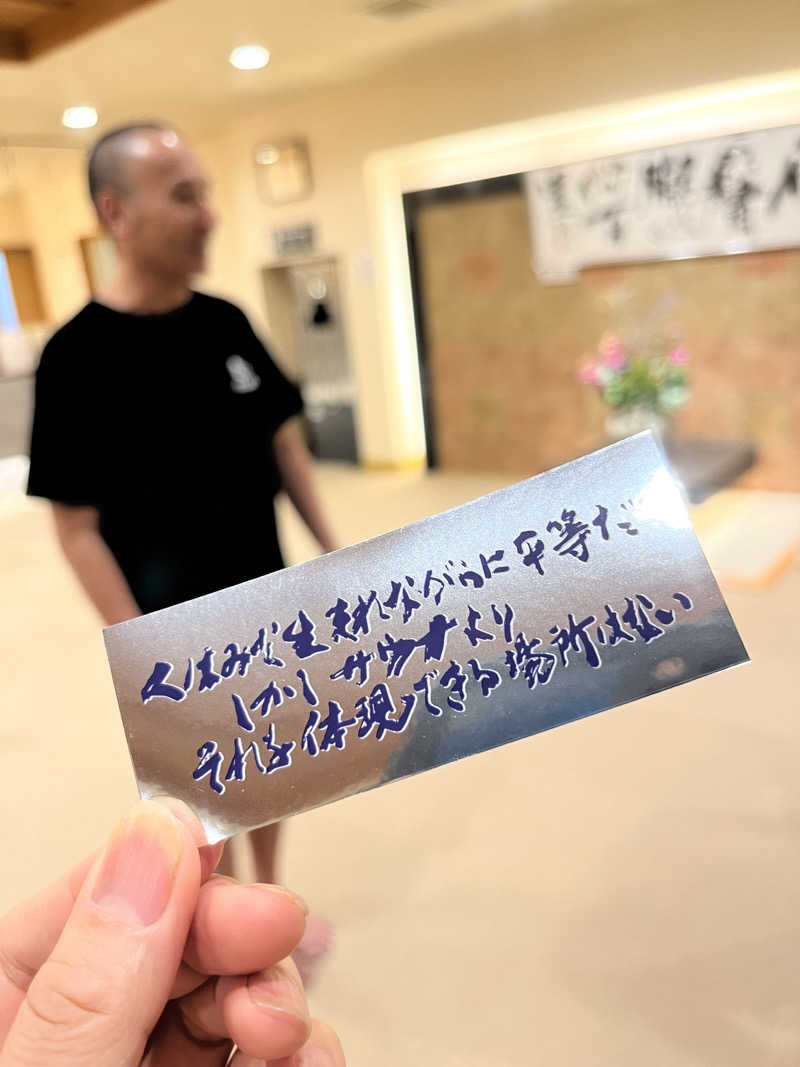 人はみな生まれながらに平等だ
しかしサウナより
それを体現できる場所はない